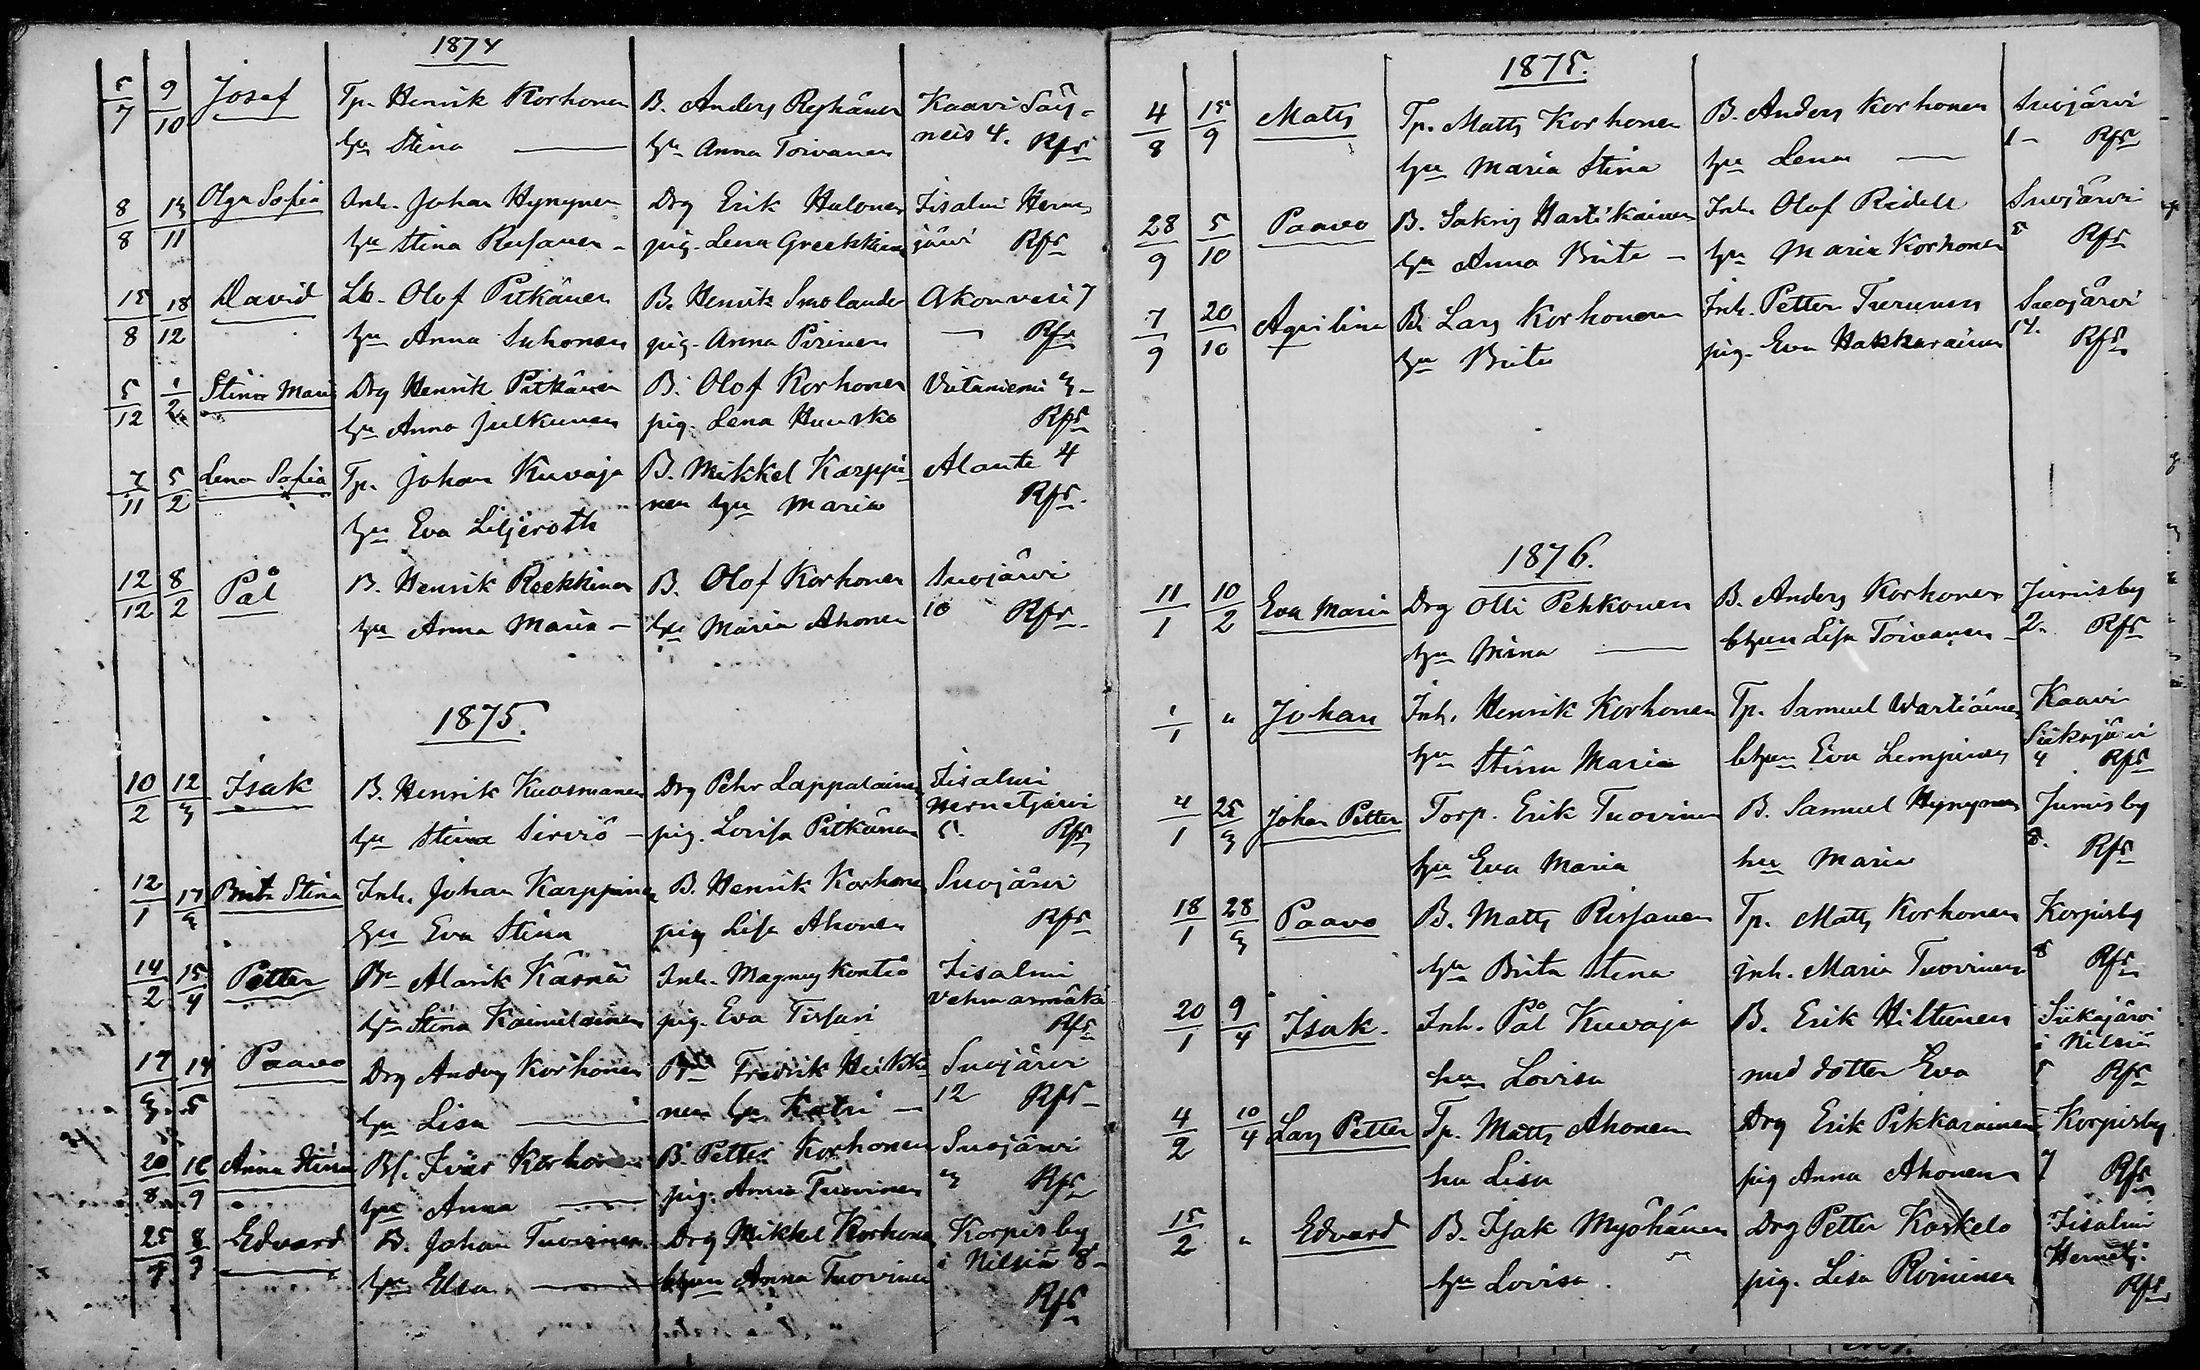 1874
5/7 9/10 Josef Tp. Henrik Korhonen B. Anders Reskänen Kaavi Säy-
hu Stina — hu Anna Toivanen neis 4. Rfs
8/8 14/11 Olga Sofia Inh. Johan Hynynen Drg Erik Halonen Iisalmi Herne
hu Stina — pig. Lena järvi Rfs
15/8 18/12 David Lb. Olof Pitkänen B. Henrik Smolander Akonvesi 7
hu Anna Suhonen pig. Anna Pirinen — Rfs
5/12 1/2 Stina Maria Drg Henrik Pitkänen B. Olof Korhonen Viitaniemi 3
hu Anna Julkunen pig. Lena Rfs
7/11 5/2 Lena Sofia Tp. Johan Kuvaja B. Mikkel Karppi- Alante 4
hu Eva Liljeroth nen hu Maria Rfs.
12/12 8/2 Pål B. Henrik Reekkinen B. Olof Korhonen Suojärvi
hu Anna Maria — hu Maria Ahonen 10 Rfs.
1875.
10/2 12/3 Isak B. Henrik Kuosmanen Drg Pehr Lappalainen Iisalmi Hernetjärvi
hu Stina Sirviö — pig. Lovisa Pitkänen 5. Rfs
12/1 17/3 Brita Stina Inh. Johan Karppinen B. Henrik Korhonen Suojärvi
hu Eva Stina pig Lisa Ahonen Rfs
14/2 15/4 Petter Bn Alarik Kärnä Inh. Magnus Kontio Iisalmi Vehmasmäki
hu Stina Kaimilainen pig. Eva Tissari Rfs
17/3 14/5 Paavo Drg Anders Korhonen Bn Fredrik Heikki- Suojärvi
hu Lisa — nen hu Katri — 12 Rfs
20/8 16/9 Anna Stina Bs. Ivar Korhonen B. Petter Korhonen Suojärvi
hu Anna — pig. Anna Tuovinen 3 Rfs
25/7 8/9 Edvard B. Johan Tuovinen Drg Mikkel Korhonen Korpisby
hu Elsa — Anna Tuovinen i Nilsiä 8
Rfs
1875.
4/8 15/9 Matts Tp. Matts Korhonen B. Anders Korhonen Suojärvi
hu Maria Stina hu Lena — 1 – Rfs
28/9 5/10 Paavo B. Sakris Hartikainen Inh. Olof Ridell Suojärvi
hu Anna Brita — hu Maria Korhonen 5 Rfs
7/9 20/10 Aqvilina B. Lars Korhonen Inh. Petter Turunen Suojärvi
hu Brita pig. Eva Hakkarainen 14. Rfs
1876.
11/1 10/2 Eva Maria Drg Olli Pehkonen B. Anders Korhonen Junisby
hu Mina — Lisa Toivanen 2. Rfs
1/1 " Johan Inh. Henrik Korhonen Tp. Samuel Wartiainen Kaavi
hu Stina Maria Eva Lempinen Siikajärvi 4 Rfs
4/1 25/3 Johan Petter Torp. Erik Tuovinen B. Samuel Hynynen Junisby
hu Eva Maria hu Maria 8. Rfs
18/1 28/3 Paavo B. Matts Rissanen Tp. Matts Korhonen Korpisby
hu Brita Stina inh. Maria Tuovinen 8 Rfs
20/1 9/4 Isak. Inh. Pål Kuvaja B. Erik Hiltunen Siikajärvi i Nilsiä
hu Lovisa med dotter Eva 5 Rfs
4/2 10/4 Lars Petter Tp. Matts Ahonen Drg Erik Pikkarainen Korpisby
hu Lisa pig Anna Ahonen 7 Rfs
15/2 " Edvard B. Isak Myöhänen Drg Petter Koskelo Iisalmi
hu Lovisa. pig. Lisa Roininen Hernetj: Rfs